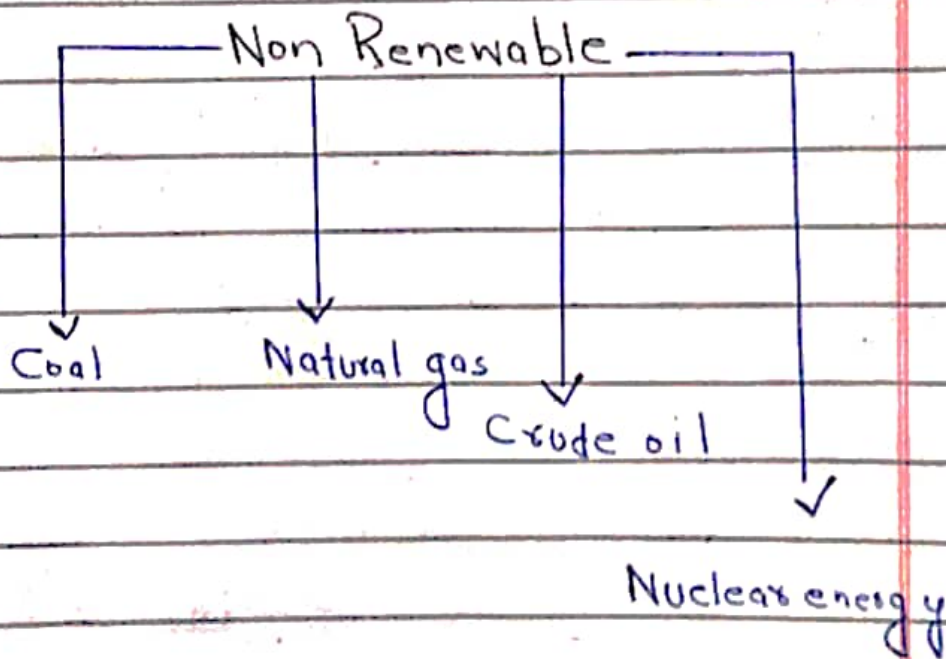 Non Renewable
Coal
Natural gas
Crude oil
Nuclear energy